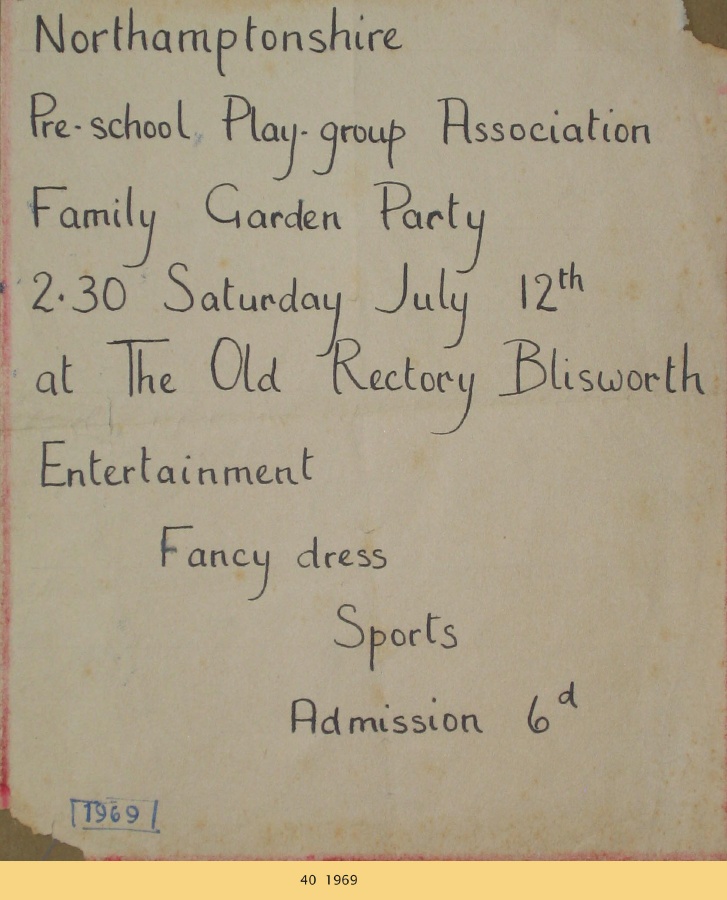 Northamptonshire
Pre-school Play-group Association
Family Garden Party
2.30 Saturday July 12th
at The Old Rectory Blisworth
Entertainment
Fancy dress
Sports
Admission 6d
1969
40 1969